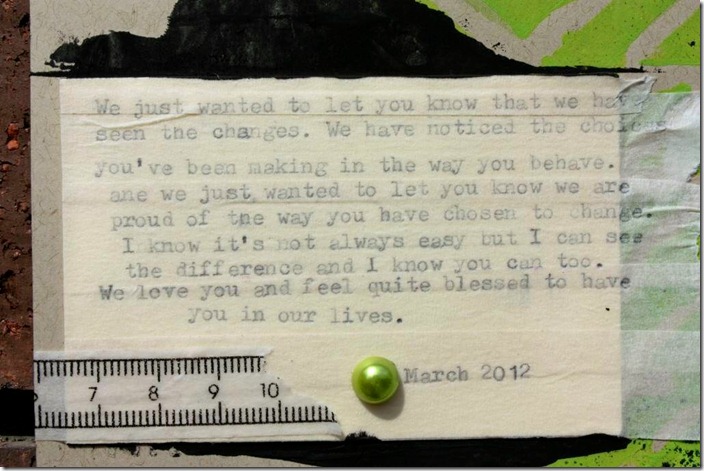 We just wanted to let you know that we have
seen the changes. We have noticed the choices
you've been making in the way you behave.
ane we just wanted to let you know we are
proud of the way you have chosen to change.
I know it's not always easy but I can see
the difference and I know you can too.
We love you and feel quite blessed to have
you in our lives.
March 2012
6 7 8 9 10